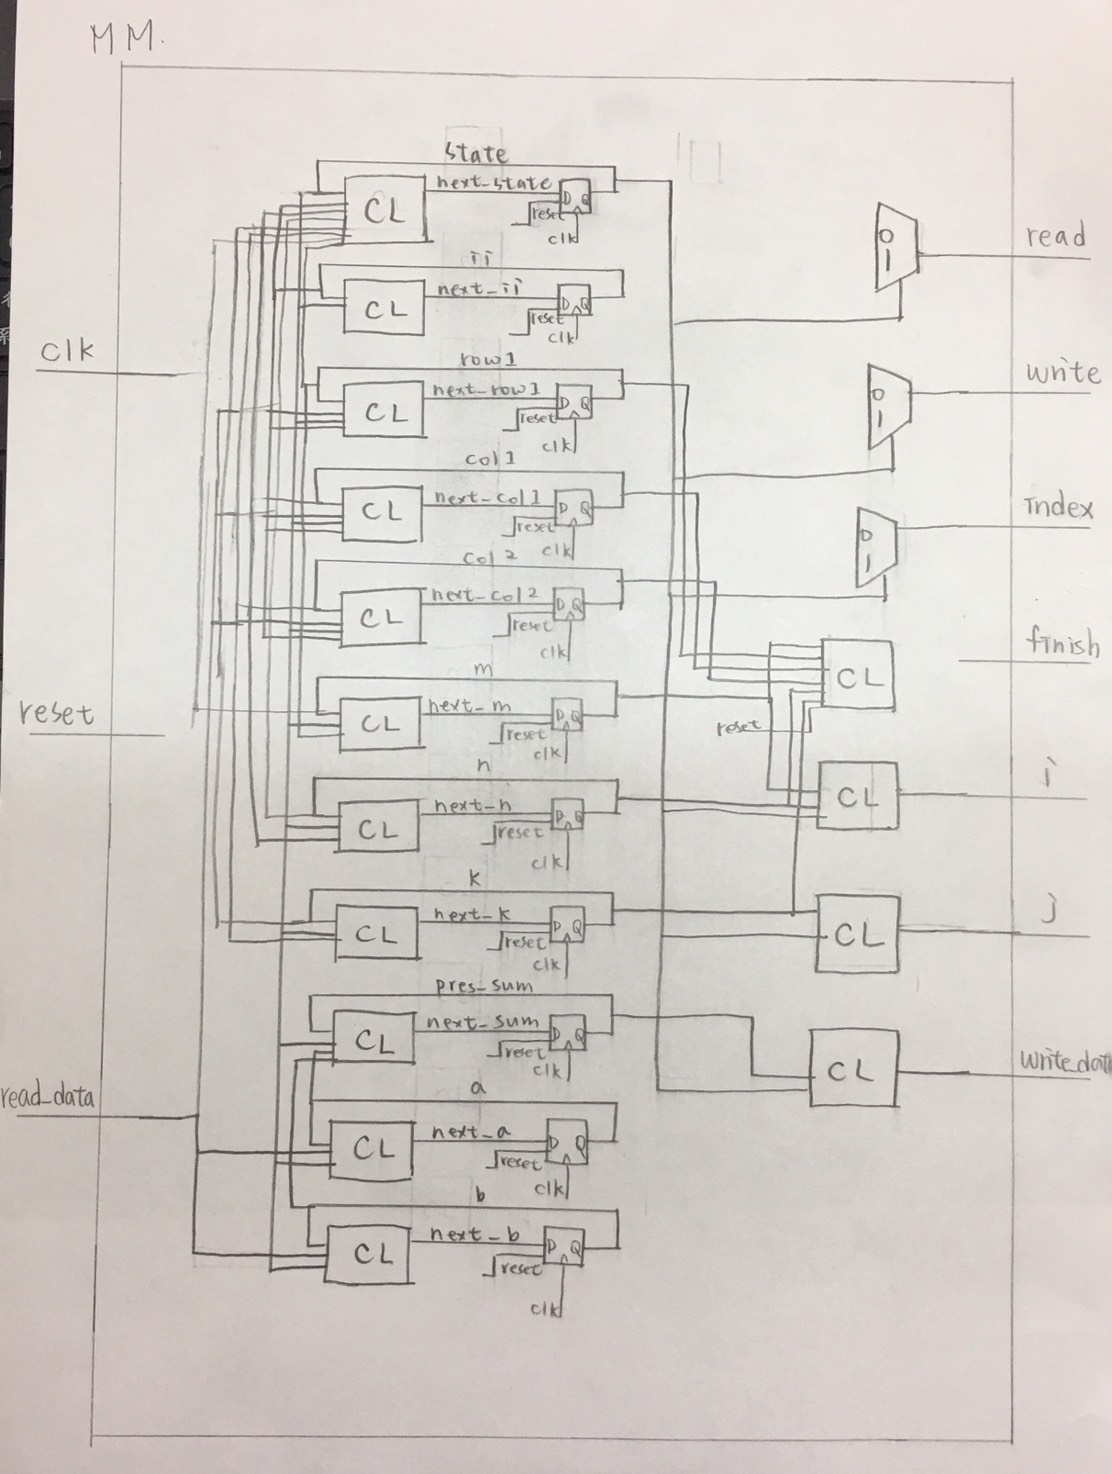 MM.
state
CL
next_state
D Q
reset
clk
ii
CL
next_ii
D Q
reset
clk
row1
CL
next_row1
D Q
reset
clk
col1
CL
next_col1
D Q
reset
clk
col2
CL
next_col2
D Q
reset
clk
m
CL
next_m
D Q
reset
clk
n
CL
next_n
D Q
reset
clk
k
CL
next_k
D Q
reset
clk
pres_sum
CL
next_sum
D Q
reset
clk
a
CL
next_a
D Q
reset
clk
b
CL
next_b
D Q
reset
clk
clk
reset
read_data
0
1
read
0
1
write
0
1
index
CL
reset
finish
CL
i
CL
j
CL
write_dat